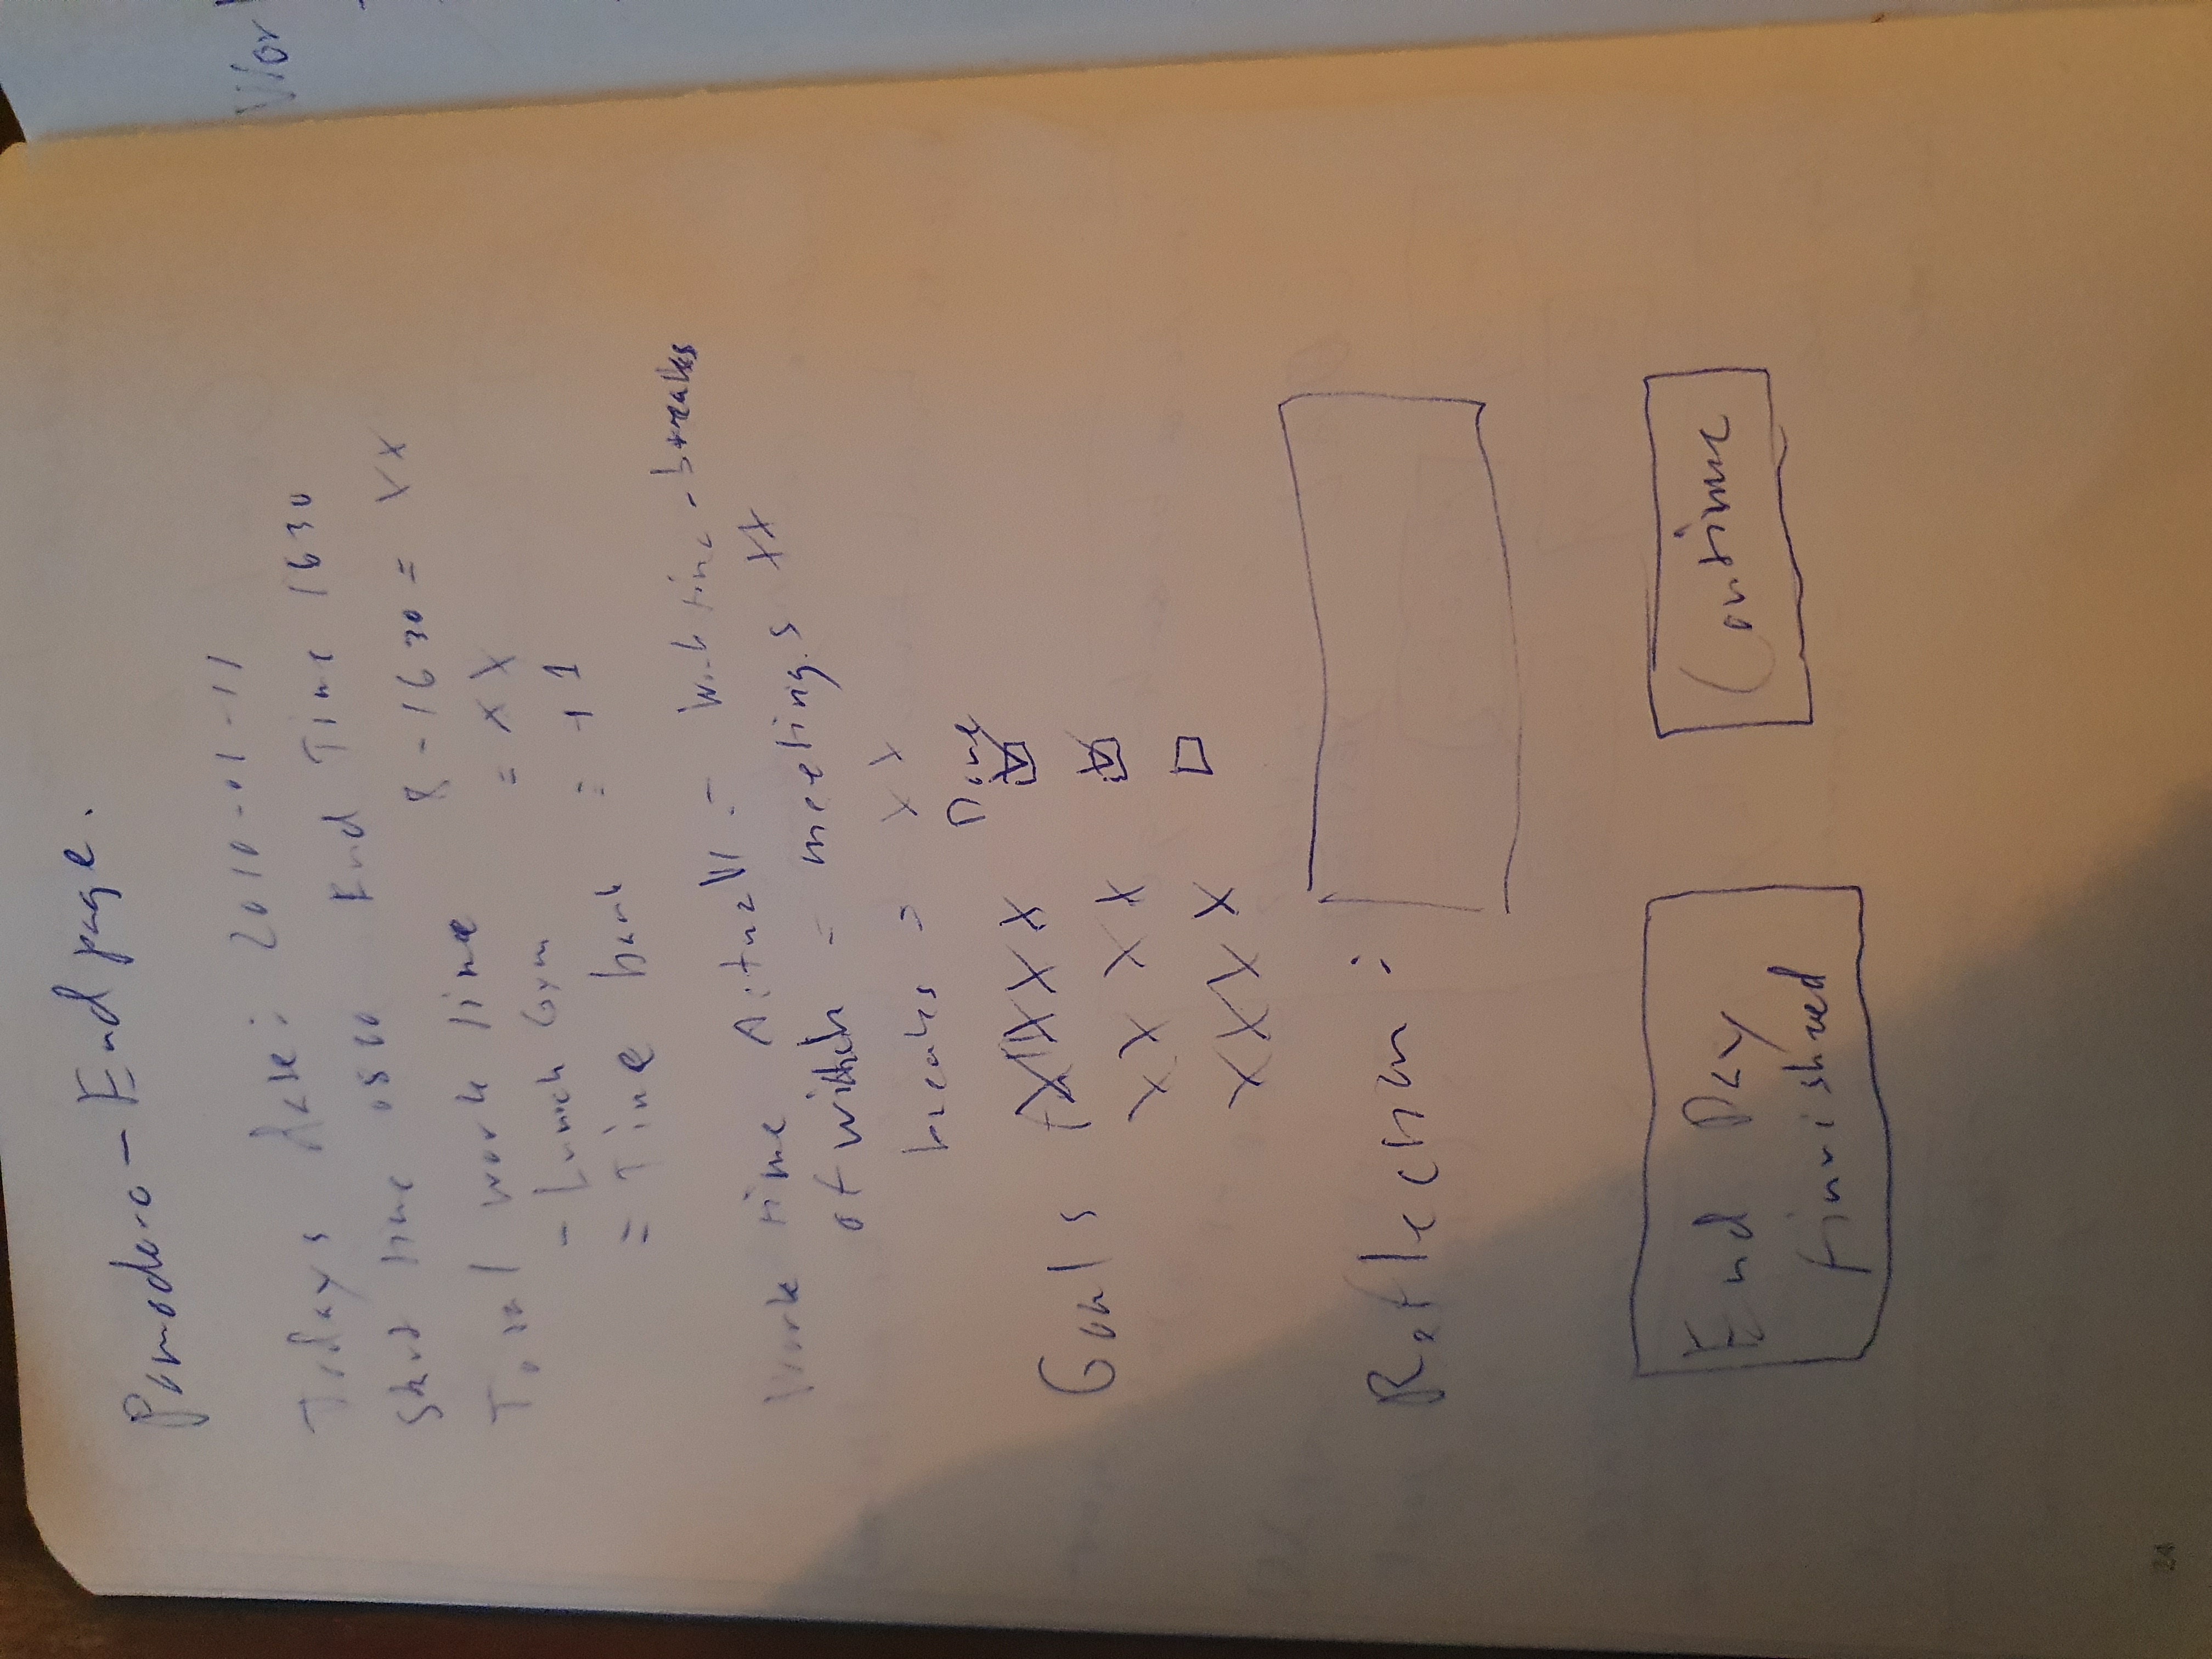 Pomodoro - End page.
Todays date: 2010-01-11
Start time 0800 End Time 1630
Total work time 8-1630 = XX
- Lunch Gym = XX
= Time bank = +1
Work time Actuall = Work time - breaks
of which = meetings XX
breaks = XX
Done
Goals XXXX ☑
XX XX ☑
XXXX ☐
Reflection:
End Day
finnished
Continue
Wor
24